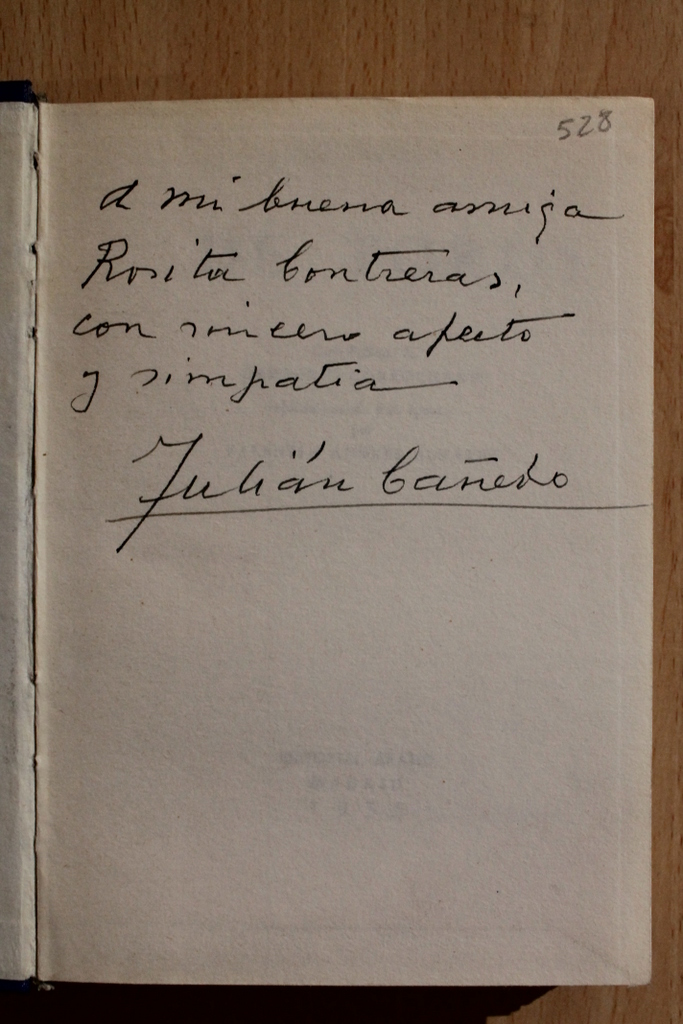 528
A mi buena amiga
Rosita Contreras,
con sincero afecto
y simpatía
Julián Cañedo